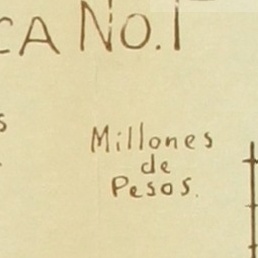 CA No. 1
s
Millones
de
Pesos.